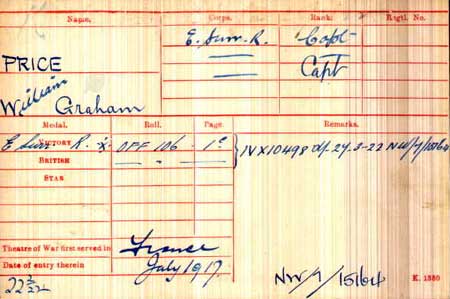 Name. Corps. Rank. Regtl. No.
E. Surr. R. Capt
PRICE Capt
William Graham
Medal. Roll. Page. Remarks.
VICTORY E Surr R. OFF 106 1c IV X10498 d/ 27-3-22 NW/7/15164
BRITISH " "
STAR
Theatre of War first served in France
Date of entry therein July 1917
NW/7/15164 K. 1380